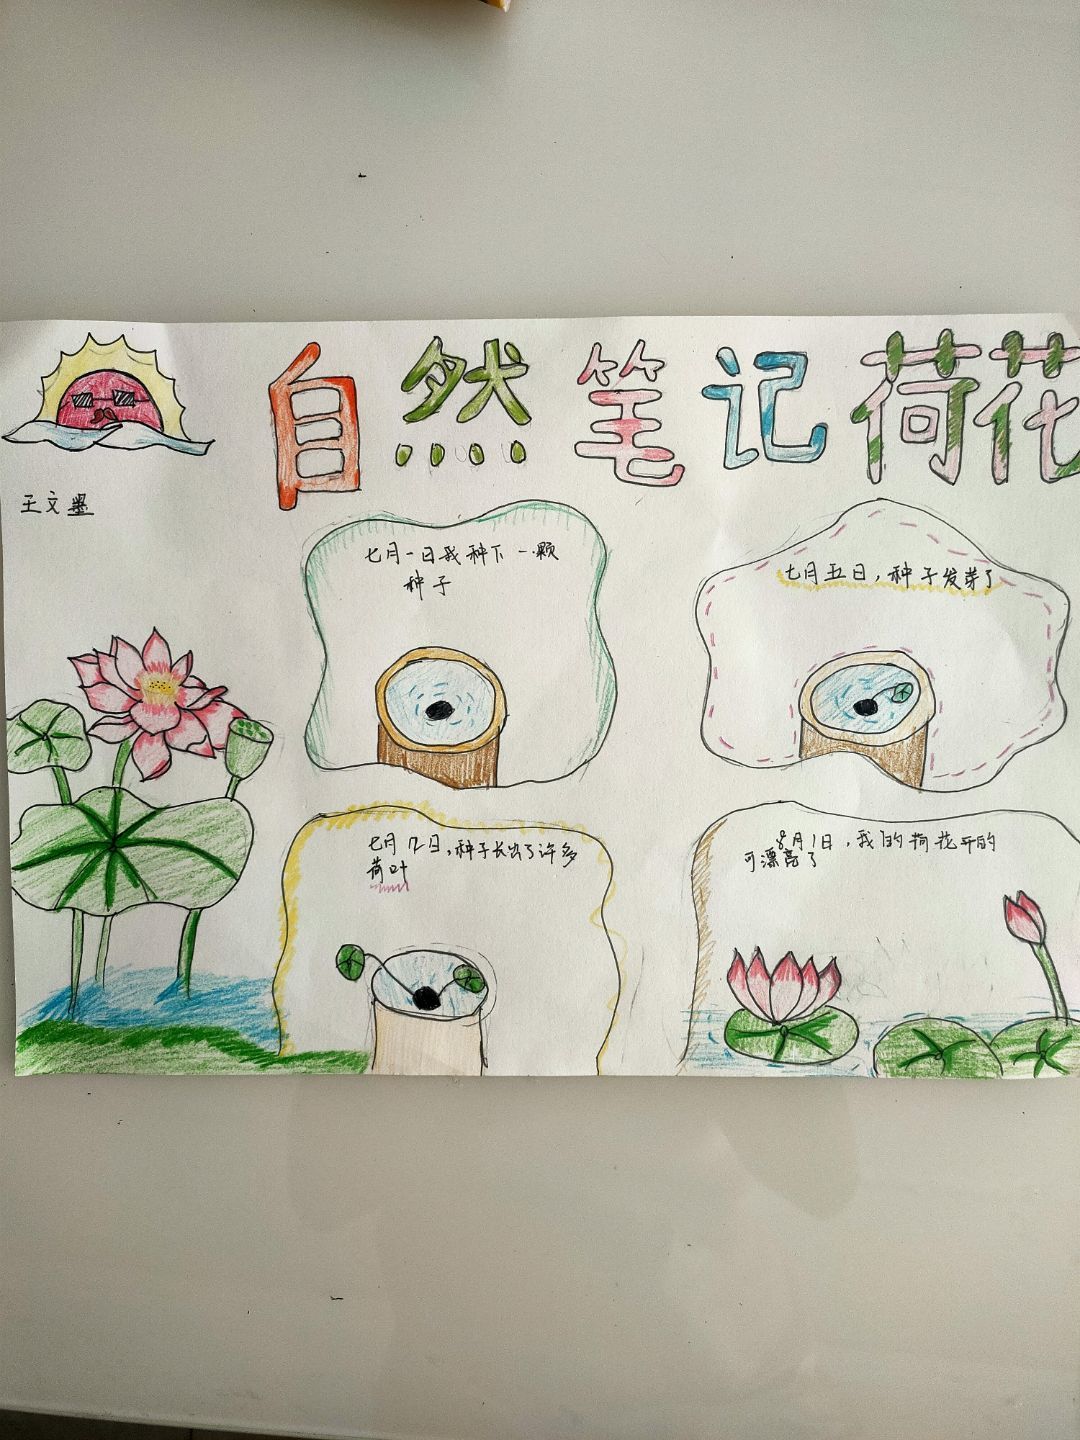 自然笔记荷花
王文墨
七月一日我种下一颗
种子
七月五日，种子发芽了
七月12日，种子长出了许多
荷叶
8月1日，我的荷花开的
可漂亮了